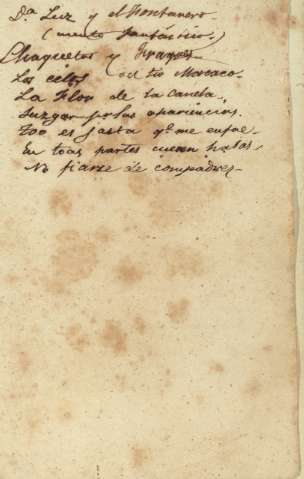 Dª Luz y el Fontanero.
(cuento fantástico.)
Chaquetas y Fraques
Los celos del tio Macaco.
La Flor de la Canela.
Juzgar por las apariencias.
Too es jasta qe me enfae.
En toas partes cuecen habas,
No fiarse de compadres.